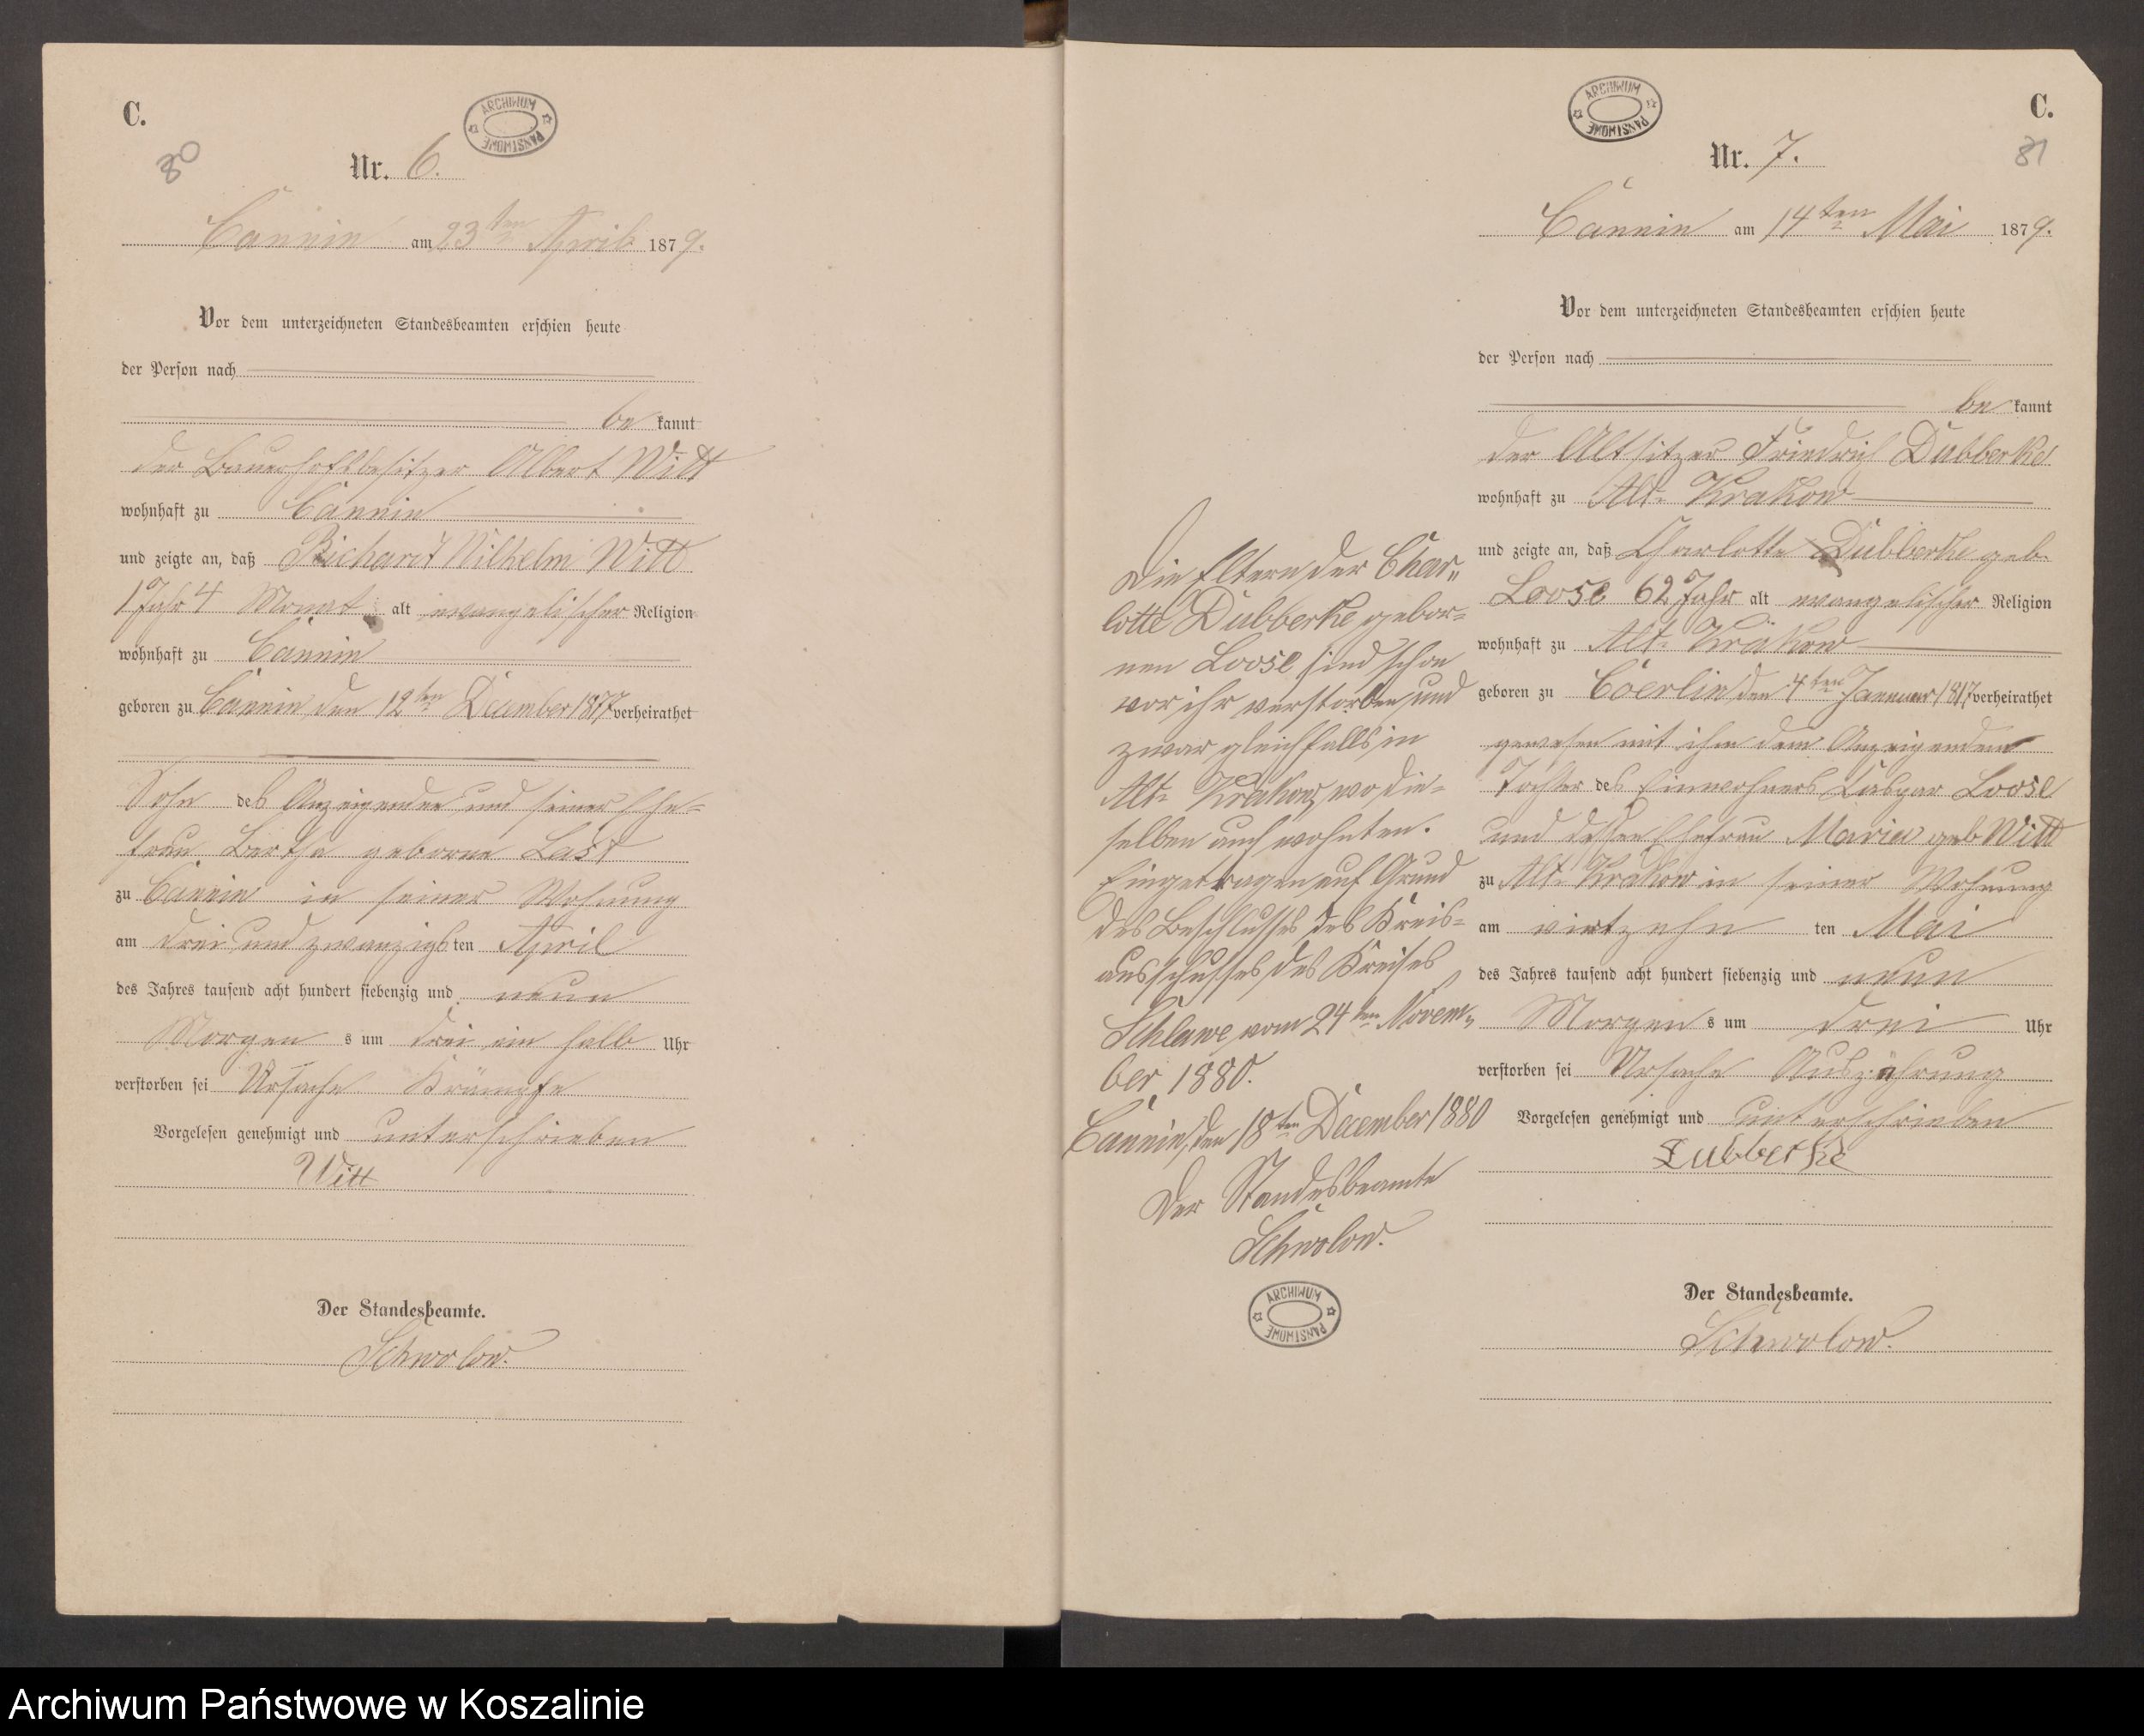 C.
ARCHIWUM PAŃSTWOWE
80
Nr. 6.
Cannin am 23ten April 1879.
Vor dem unterzeichneten Standesbeamten erschien heute
der Person nach
be kannt
der Bauerhofsbesitzer Albert Witt
wohnhaft zu Cannin
und zeigte an, daß Richard Wilhelm Witt
1 Jahr 4 Monat alt evangelischer Religion
wohnhaft zu Cannin
geboren zu Cannin den 12ten December 1877 verheirathet
Sohn des Anzeigenden und seiner Ehe-
frau Bertha geborne Last
zu Cannin in seiner Wohnung
am drei und zwanzigs ten April
des Jahres tausend acht hundert siebenzig und neun
Morgen s um drei ein halb Uhr
verstorben sei Ursache Krämpfe
Vorgelesen genehmigt und unterschrieben
Witt
Der Standesbeamte.
Schwolow.
Die Eltern der Char„
lotte Dubberke gebor=
nen Loose sind schon
vor ihr verstorben und
zwar gleichfalls in
Alt- Krakow, wo die=
selben auch wohnten.
Eingetragen auf Grund
des Beschlusses des Kreis=
ausschusses des Kreises
Schlawe vom 24ten Novem„
ber 1880.
Cannin, den 18ten December 1880
Der Standesbeamte
Schwolow.
ARCHIWUM PAŃSTWOWE
ARCHIWUM PAŃSTWOWE
C.
81
Nr. 7.
Cannin am 14ten Mai 1879.
Vor dem unterzeichneten Standesbeamten erschien heute
der Person nach
be kannt
der Altsitzer Friedrich Dubberke
wohnhaft zu Alt- Krakow
und zeigte an, daß Charlotte Dubberke geb.
Loose 62 Jahr alt evangelischer Religion
wohnhaft zu Alt- Krakow
geboren zu Coerlin den 4ten Januar 1817 verheirathet
gewesen mit ihm dem Anzeigenden
Tochter des Einwohners Caspar Loose
und dessen Ehefrau Maria geb Witt
zu Alt- Krakow in seiner Wohnung
am viertzehn ten Mai
des Jahres tausend acht hundert siebenzig und neun
Morgen s um drei Uhr
verstorben sei Ursache Auszährung
Vorgelesen genehmigt und unterschrieben
Dubberke
Der Standesbeamte.
Schwolow.
Archiwum Państwowe w Koszalinie